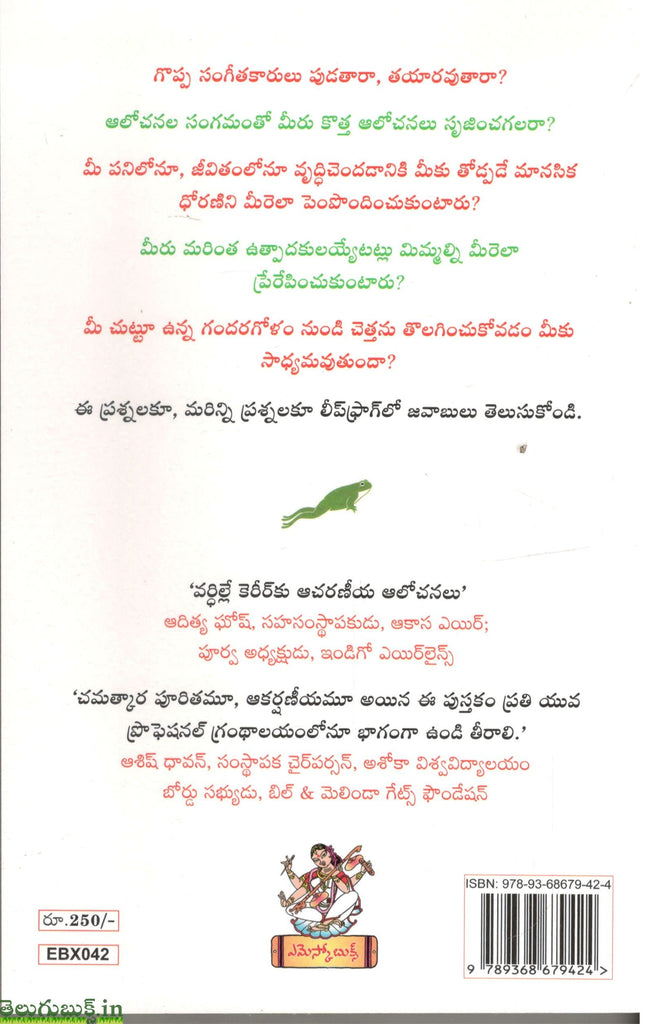 గొప్ప సంగీతకారులు పుడతారా, తయారవుతారా?
ఆలోచనల సంగమంతో మీరు కొత్త ఆలోచనలు సృజించగలరా?
మీ పనిలోనూ, జీవితంలోనూ వృద్ధిచెందడానికి మీకు తోడ్పడే మానసిక
ధోరణిని మీరెలా పెంపొందించుకుంటారు?
మీరు మరింత ఉత్పాదకులయ్యేటట్లు మిమ్మల్ని మీరెలా
ప్రేరేపించుకుంటారు?
మీ చుట్టూ ఉన్న గందరగోళం నుండి చెత్తను తొలగించుకోవడం మీకు
సాధ్యమవుతుందా?
ఈ ప్రశ్నలకూ, మరిన్ని ప్రశ్నలకూ లీప్‌ఫ్రాగ్‌లో జవాబులు తెలుసుకోండి.
‘వర్ధిల్లే కెరీర్‌కు ఆచరణీయ ఆలోచనలు’
ఆదిత్య ఘోష్, సహసంస్థాపకుడు, ఆకాస ఎయిర్;
పూర్వ అధ్యక్షుడు, ఇండిగో ఎయిర్‌లైన్స్
‘చమత్కార పూరితమూ, ఆకర్షణీయమూ అయిన ఈ పుస్తకం ప్రతి యువ
ప్రొఫెషనల్ గ్రంథాలయంలోనూ భాగంగా ఉండి తీరాలి.’
ఆశిష్ ధావన్, సంస్థాపక చైర్‌పర్సన్, అశోకా విశ్వవిద్యాలయం
బోర్డు సభ్యుడు, బిల్ & మెలిండా గేట్స్ ఫౌండేషన్
ఎమెస్కో బుక్స్
రూ.250/-
EBX042
ISBN: 978-93-68679-42-4
9 789368 679424 >
తెలుగుబుక్స్.in